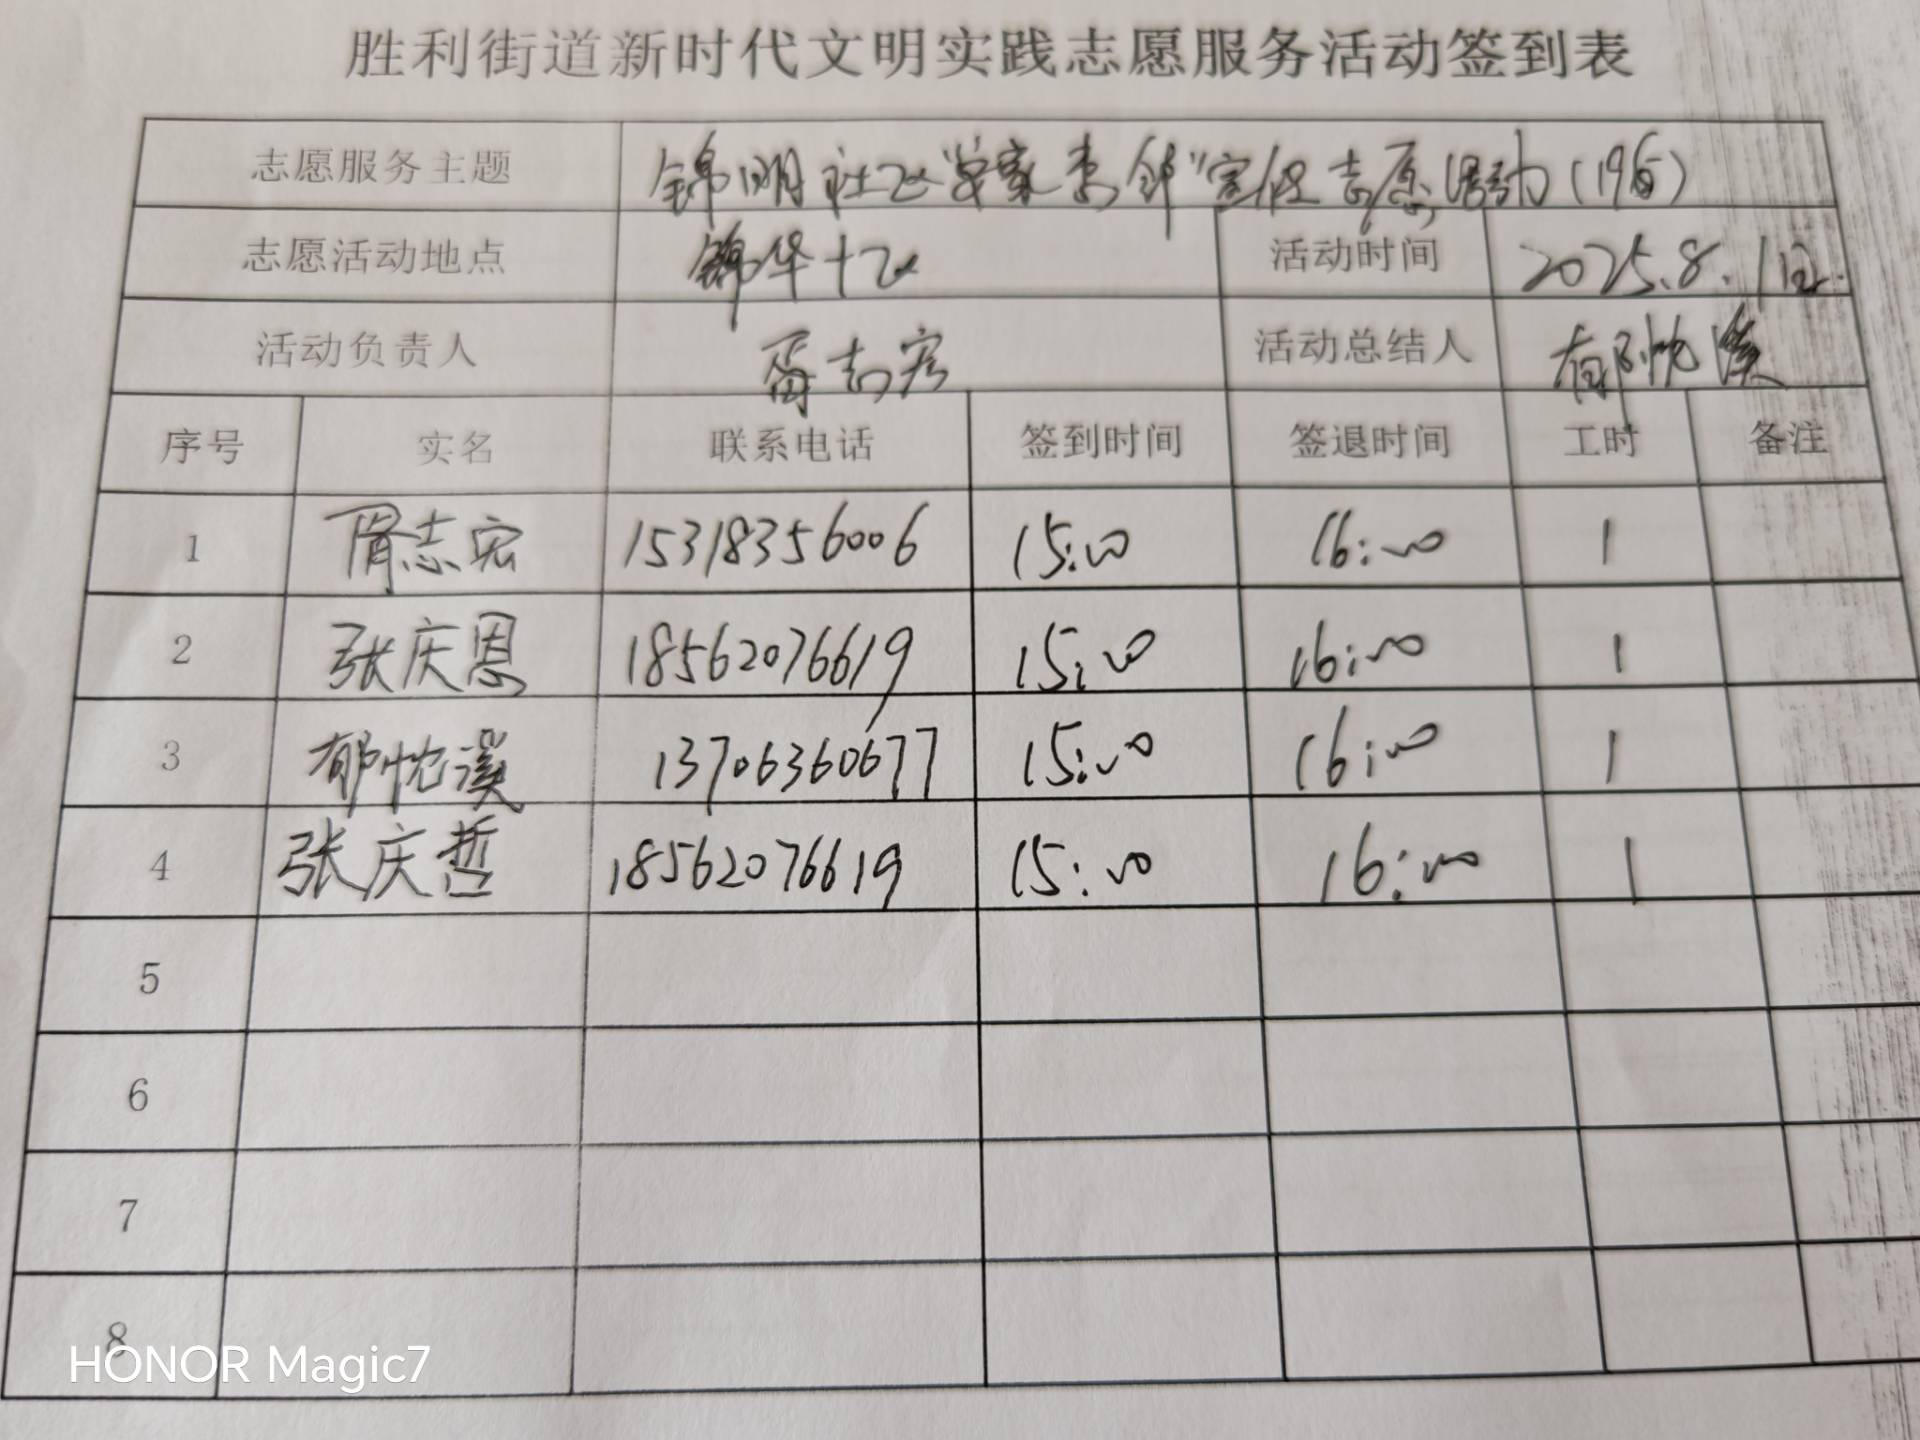 胜利街道新时代文明实践志愿服务活动签到表
志愿服务主题 锦明社区 志愿活动
志愿活动地点 锦华十区 活动时间 2025.8.
活动负责人 胥志宏 活动总结人 郁忱溪
序号 实名 联系电话 签到时间 签退时间 工时 备注
1 胥志宏 15318356006 15:00 16:00 1
2 张庆恩 18562076619 15:00 16:00 1
3 郁忱溪 13706360677 15:00 16:00 1
4 张庆哲 18562076619 15:00 16:00 1
5
6
7
8
HONOR Magic7